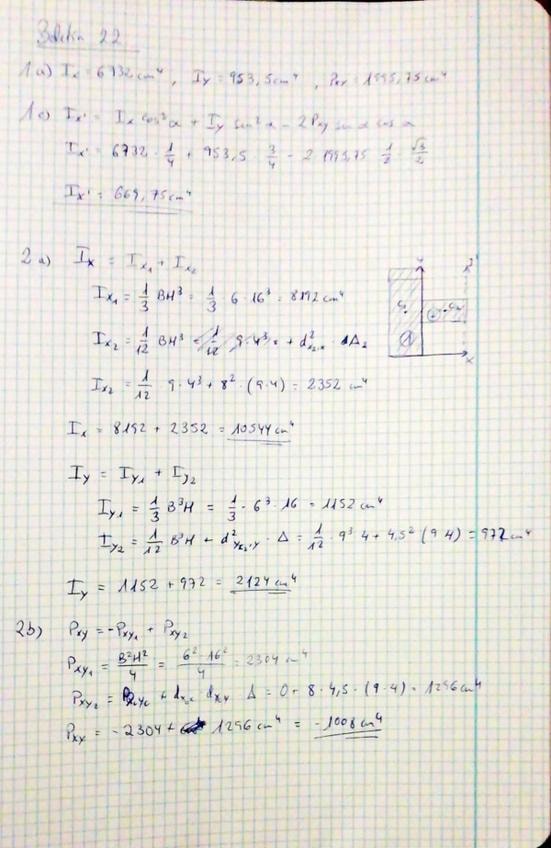 22
1a) Ix = 6732 cm⁴ , Iy = 953,5 cm⁴ , Pxy = 1995,75 cm⁴
1c) Ix' = Ix cos²α + Iy sin²α - 2Pxy sin α cos α
Ix' = 6732 · 1/4 + 953,5 · 3/4 - 2 · 1995,75 · 1/2 · √3/2
Ix' = 669,75 cm⁴
2a) Ix = Ix₁ + Ix₂
Ix₁ = 1/3 BH³ = 1/3 · 6 · 16³ = 8192 cm⁴
Ix₂ = 1/12 BH³ + d²x₂,x · A₂
Ix₂ = 1/12 · 9 · 4³ + 8² · (9·4) = 2352 cm⁴
Ix = 8192 + 2352 = 10544 cm⁴
Iy = Iy₁ + Iy₂
Iy₁ = 1/3 B³H = 1/3 · 6³ · 16 = 1152 cm⁴
Iy₂ = 1/12 B³H + d² · A = 1/12 · 9³ · 4 + 4,5² (9·4) = 972 cm⁴
Iy = 1152 + 972 = 2124 cm⁴
2b) Pxy = -Pxy₁ + Pxy₂
Pxy₁ = B²H²/4 = 6²·16²/4 = 2304 cm⁴
Pxy₂ = + A = 0 + 8 · 4,5 · (9·4) = 1296 cm⁴
Pxy = -2304 + 1296 cm⁴ = -1008 cm⁴